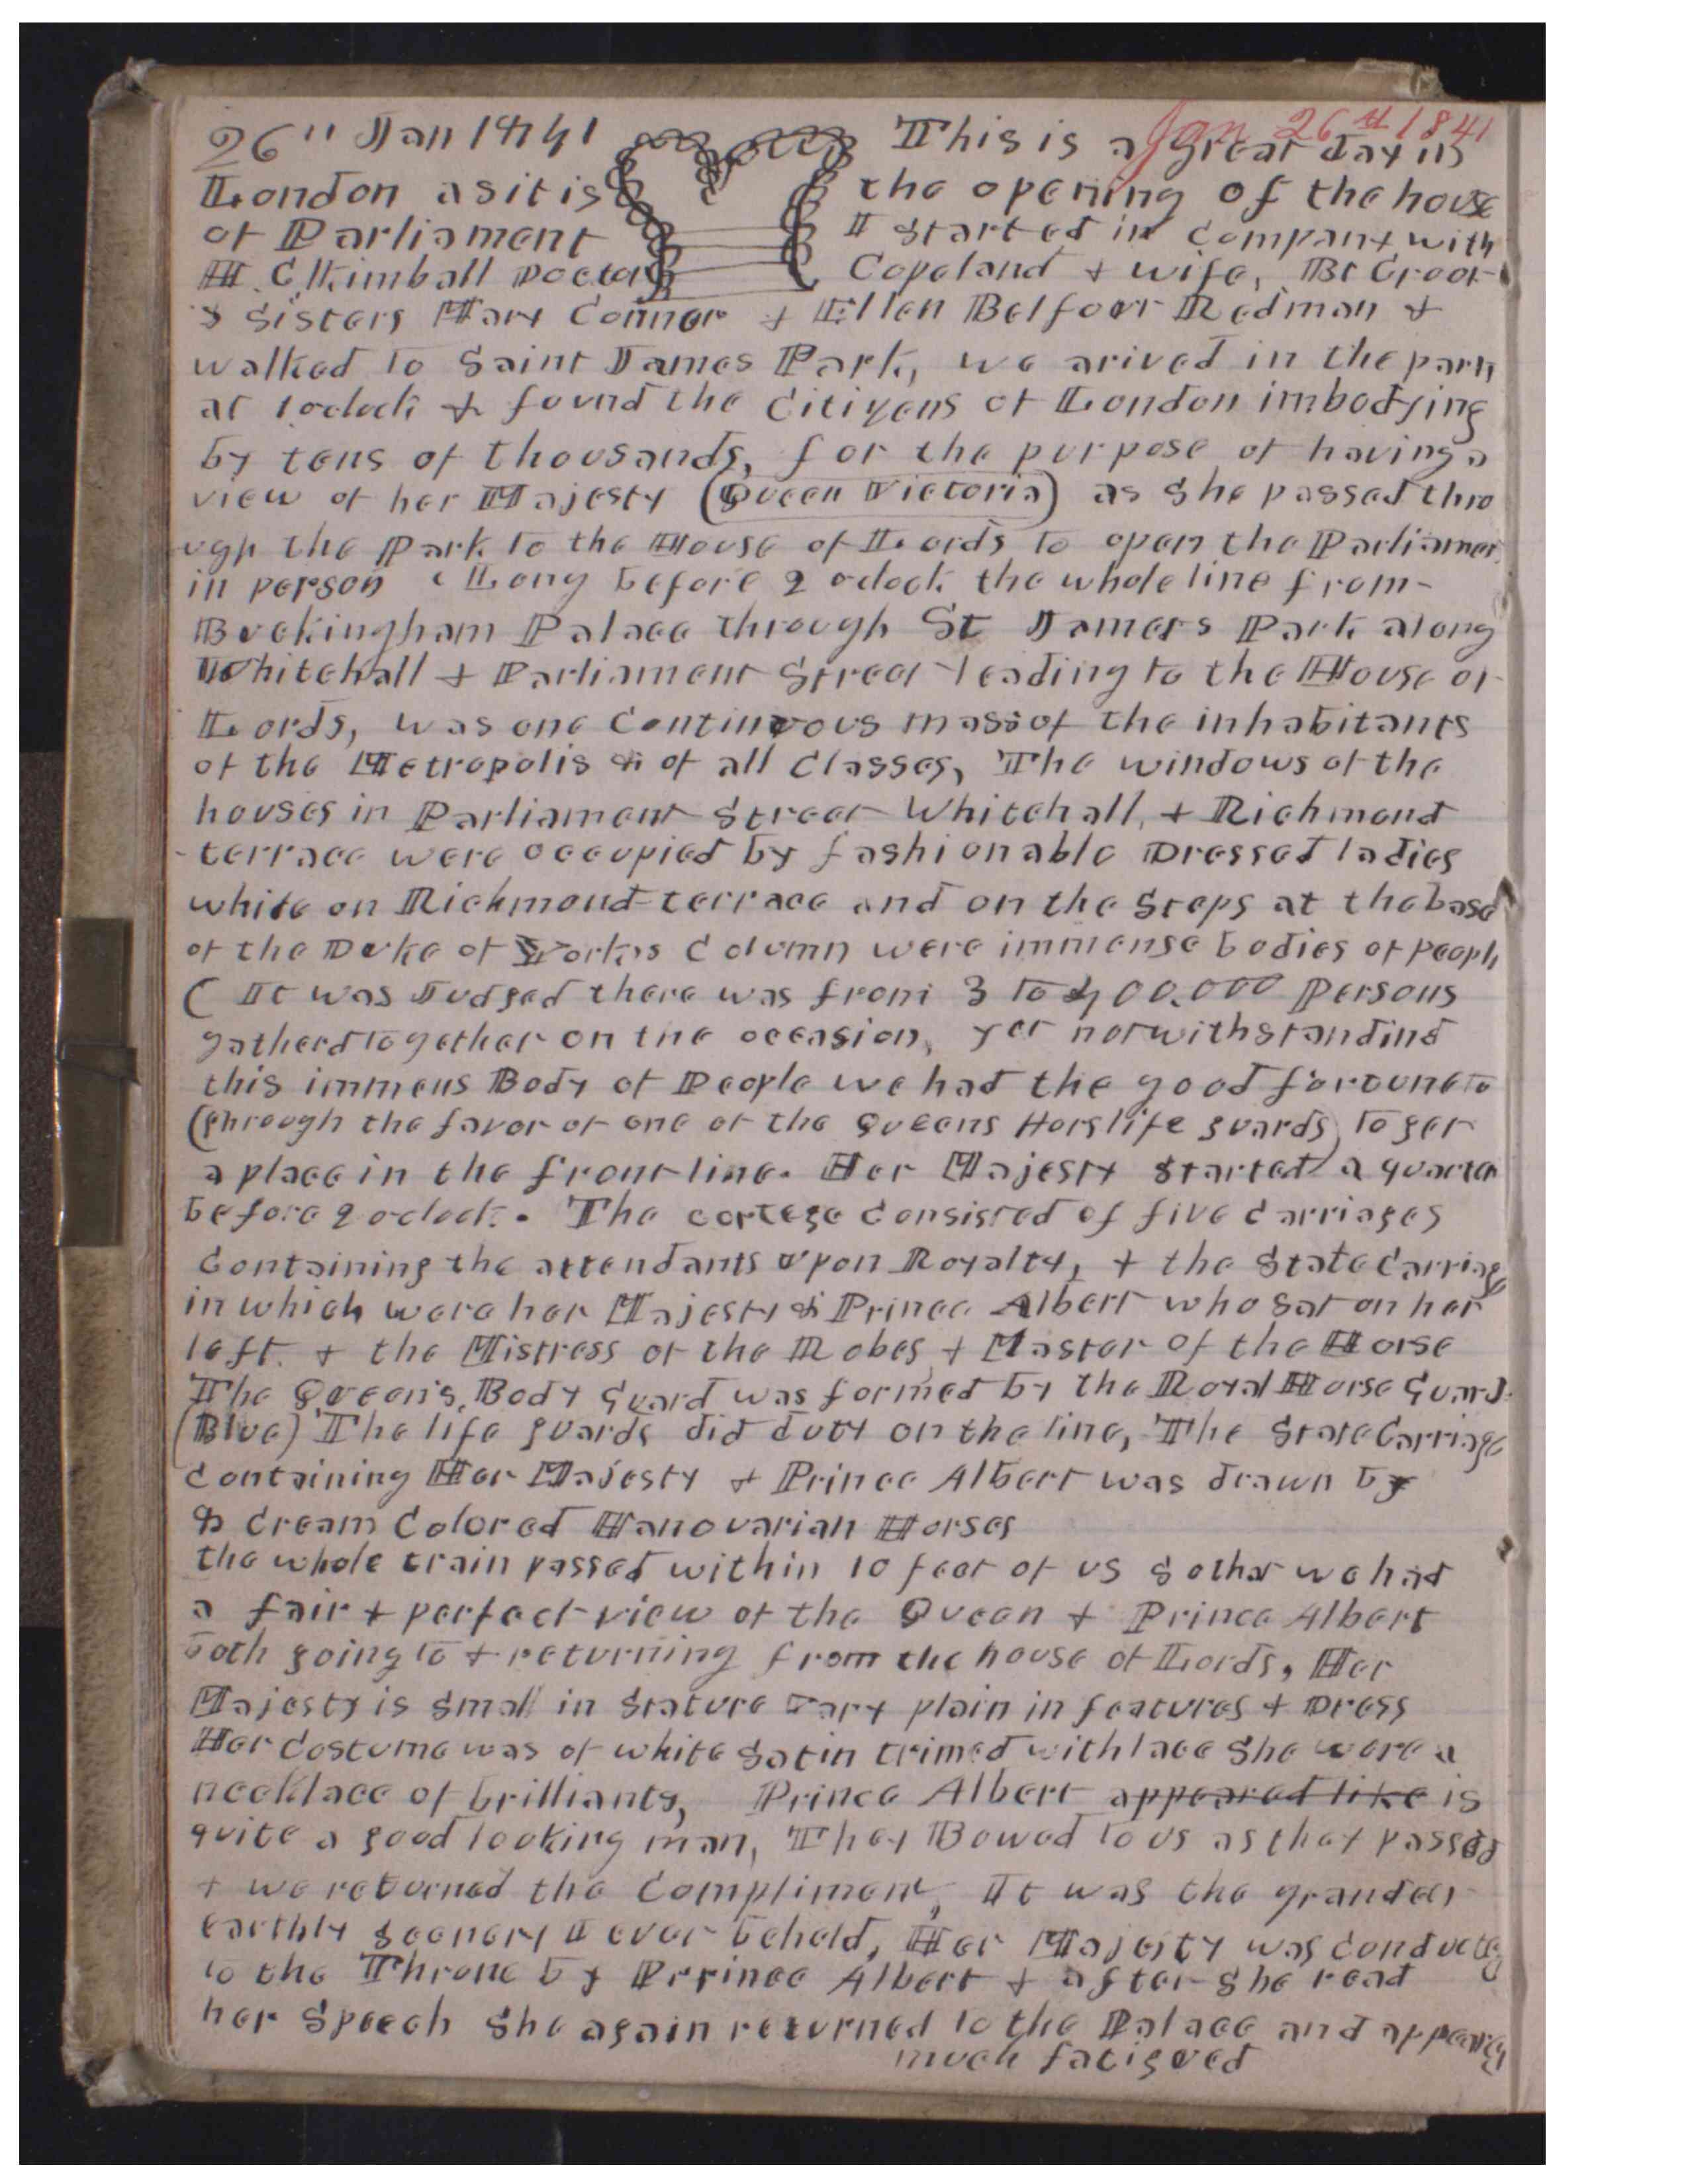 Jan 26th 1841
26" Jan 1841 This is a great day in
London as it is the opening of the house
of Parliament I started in company with
H. C Kimball Doctor Copeland & wife, Br Groos
& Sisters Mary Connor & Ellen Belfour Redman &
walked to Saint James Park, we arived in the park
at 1 oclock & found the Citizens of London imbodying
by tens of thousands, for the purpose of having a
view of her Majesty (Queen Victoria) as she passed thro
ugh the Park to the House of Lords to open the Parliamen
in person Long before 2 oclock the whole line from-
Buckingham Palace through St Jamers Park along
Whitehall & Parliament Street leading to the House of
Lords, was one continuous mass of the inhabitants
of the Metropolis & of all Classes, The windows of the
houses in Parliament Street Whitehall, & Richmond
terrace were occupied by fashionable Dressed ladies
while on Richmond terrace and on the Steps at the base
of the Duke of Yorks Column were immense bodies of peopl
( It was Judged there was from 3 to 400.000 Persons
gatherd together on the occasion, yet notwithstanding
this immens Body of People we had the good fortune to
(through the favor of one of the Queens Hors life guards) to get
a place in the front line. Her Majesty started a quarter
before 2 oclock. The cortege consisted of five carriages
containing the attendants upon Royalty, & the State Carriage
in which were her Majesty & Prince Albert who sat on her
left. & the Mistress of the Robes, & Master of the Horse
The Queen's Body Guard was formed by the Royal Horse Guard
(Blue) The life guards did duty on the line, The State Carriage
containing Her Majesty & Prince Albert was drawn by
8 cream Colored Hanovarian Horses
the whole train passed within 10 feet of us so that we had
a fair & perfect view of the Queen & Prince Albert
both going to & returning from the house of Lords, Her
Majesty is small in stature vary plain in features & Dress
Her costume was of white Satin trimed with lace She wore a
necklace of brilliants, Prince Albert appeared like is
quite a good looking man, They Bowed to us as they passed
& we returned the compliment, It was the grandest
earthly scenery I ever beheld, Her Majesty was conducted
to the Throne by Prrince Albert & after she read
her Speech She again returned to the Palace and appeared
much fatigued